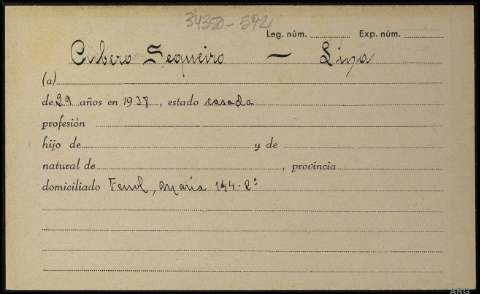 34350-592
Leg. núm. Exp. núm.
Cubero Sequeiro — Lina
(a)
de 29 años en 1937, estado casada
profesión
hijo de y de
natural de , provincia
domiciliado Ferrol, María 144-2º
ARG